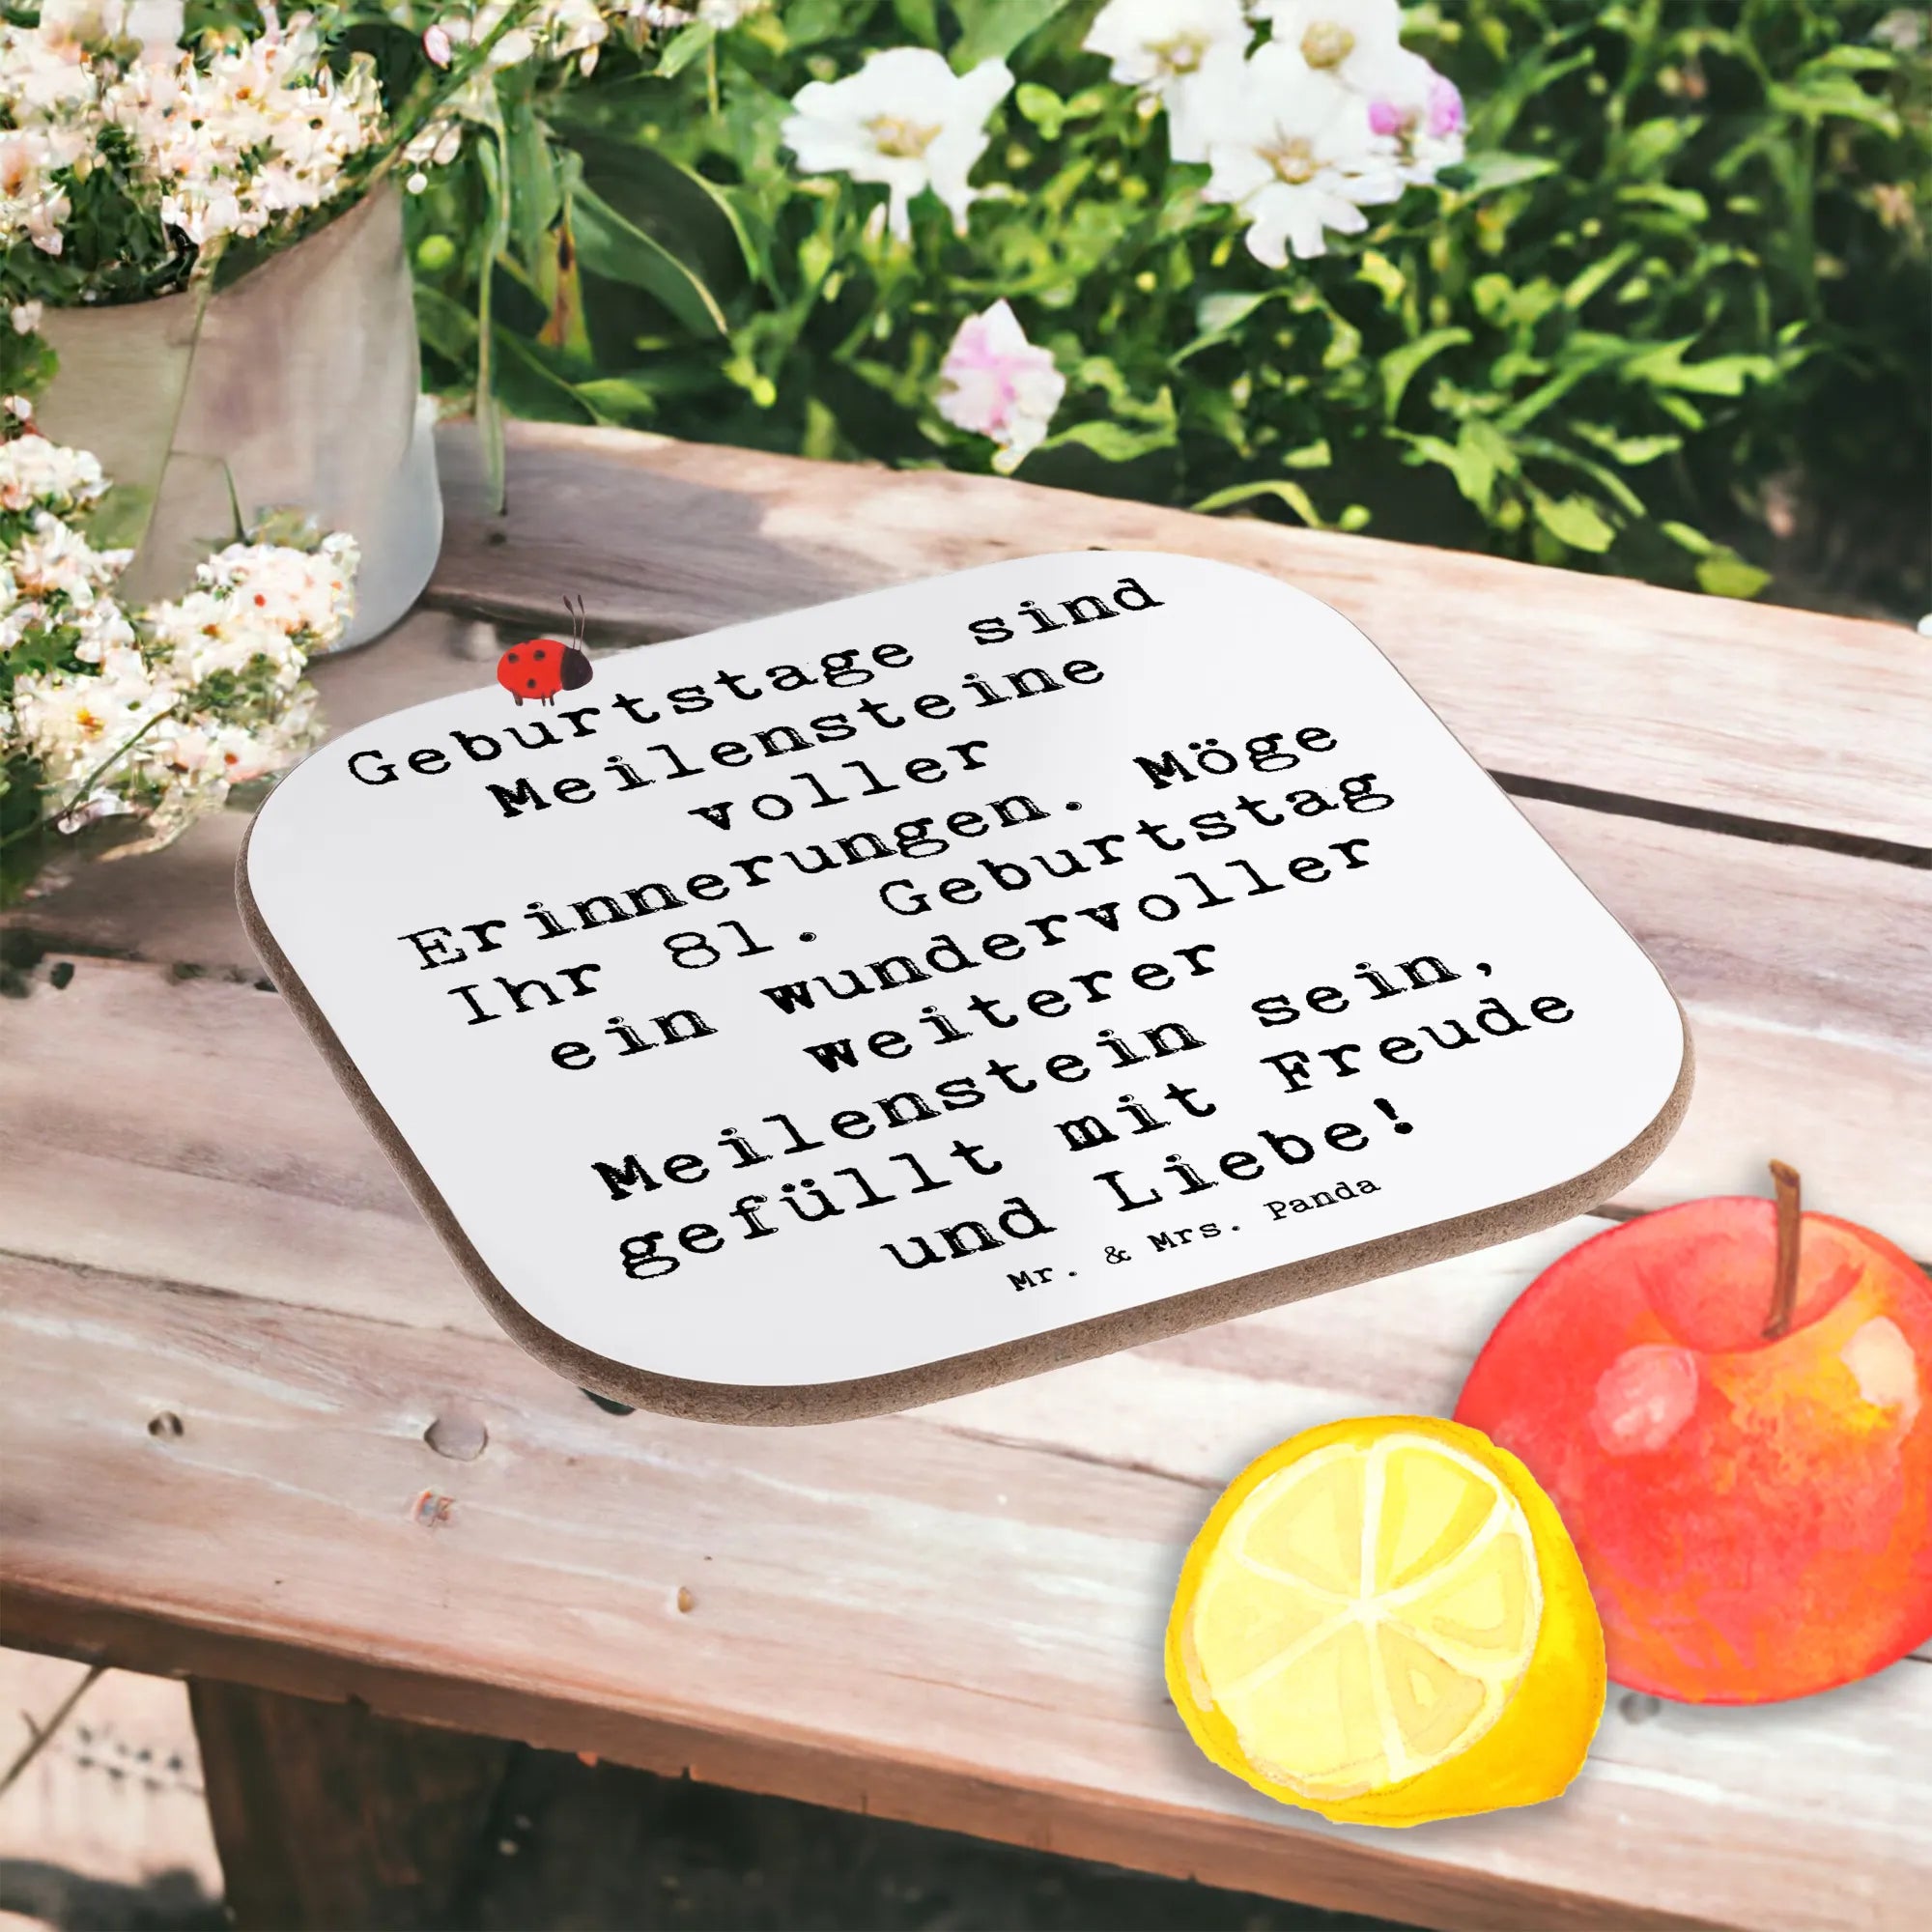 Geburtstage sind
Meilensteine
voller
Erinnerungen. Möge
Ihr 81. Geburtstag
ein wundervoller
weiterer
Meilenstein sein,
gefüllt mit Freude
und Liebe!
Mr. & Mrs. Panda